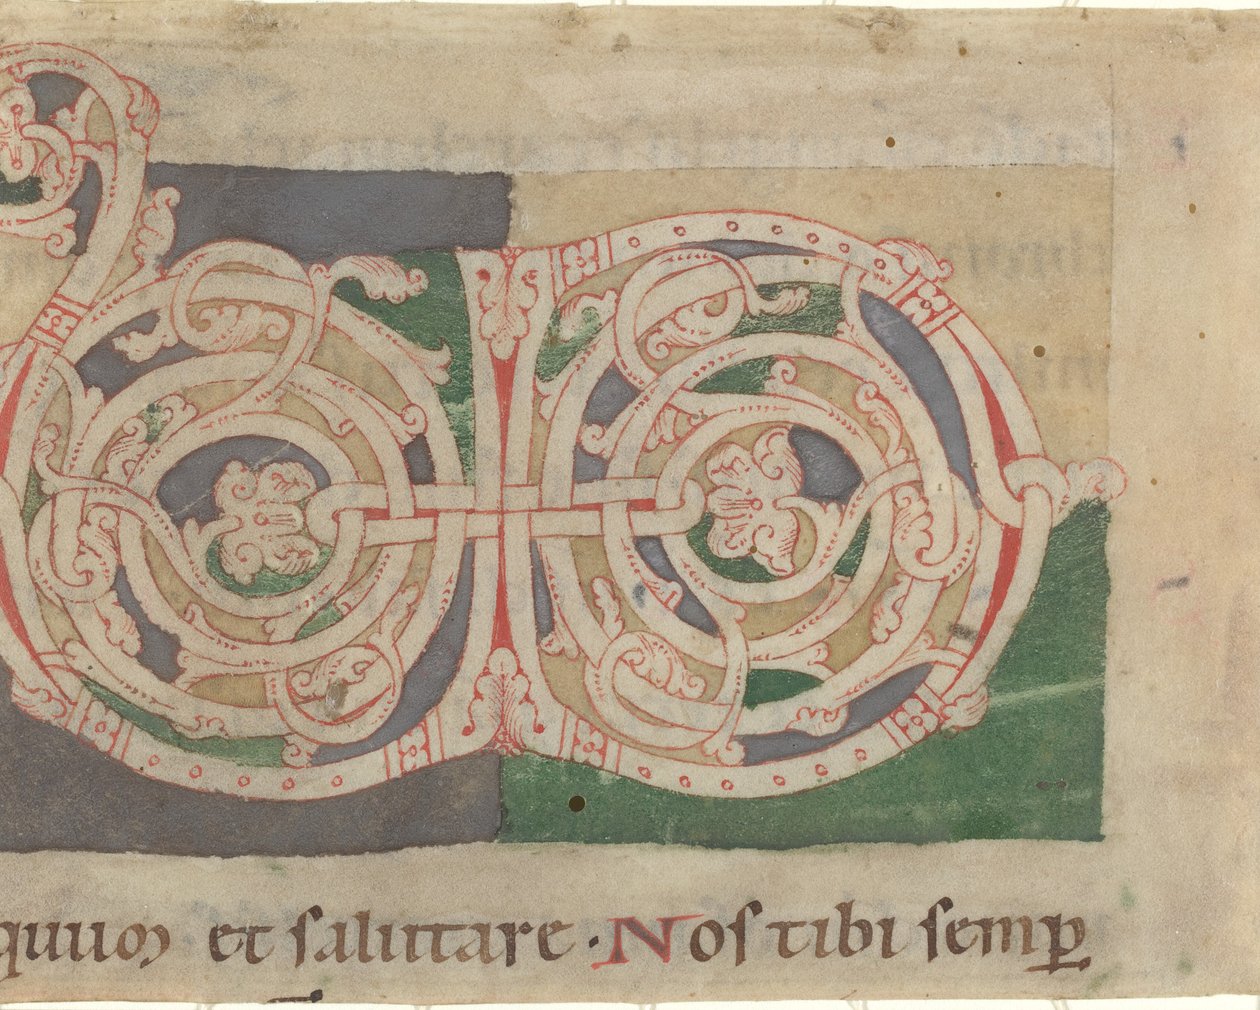 quum et ſalutare · Nos tibi ſemꝑ